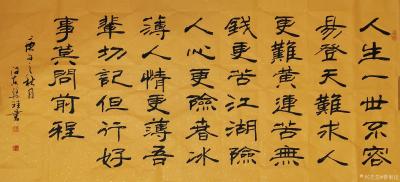 人生一世不容
易登天難求人
更難黃連苦無
錢更苦江湖險
人心更險春冰
薄人情更薄吾
輩切記但行好
事莫問前程